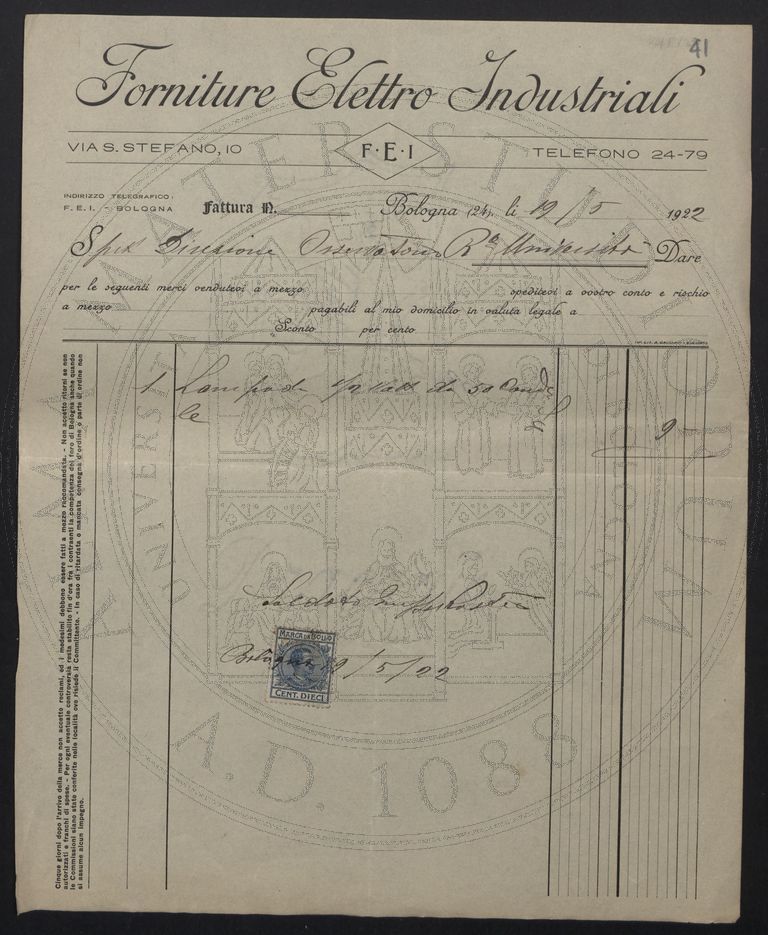 41
Forniture Elettro Industriali
VIA S. STEFANO, 10
F·E·I
TELEFONO 24-79
INDIRIZZO TELEGRAFICO:
F. E. I. - BOLOGNA
Fattura N.
Bologna (24), li 19/5 1922
Spett Direzione Osservatorio Ra Università Dare
per le seguenti merci vendutevi a mezzo speditevi a vostro conto e rischio
a mezzo pagabili al mio domicilio in valuta legale a
Sconto per cento
1 Lampada 1/2 Watt da 50 Cande
le £ 9 -
Saldato
MARCA DA BOLLO
Bologna 19/5/22
CENT. DIECI
Cinque giorni dopo l'arrivo della merce non accetto reclami, ed i medesimi debbono essere fatti a mezzo raccomandata. - Non accetto ritorni se non
autorizzati e franchi di spese. - Per ogni eventuale controversia resta stabilito fin d'ora fra i contraenti la competenza del foro di Bologna anche quando
le Commissioni siano state conferite nelle località ove risiede il Committente. - In caso di ritardata o mancata consegna d'ordine o parte di ordine non
si assume alcun impegno.
ALMA MATER STUDIORUM
UNIVERSITÀ
A.D. 1088